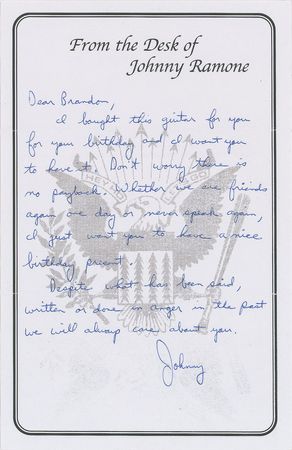 From the Desk of
Johnny Ramone
Dear Brandon,
I bought this guitar for you
for your birthday and I want you
to have it. Don't worry there is
no payback. Whether we are friends
again one day or never speak again,
I just want you to have a nice
birthday present.
Despite what has been said,
written or done in anger in the past
we will always care about you.
Johnny